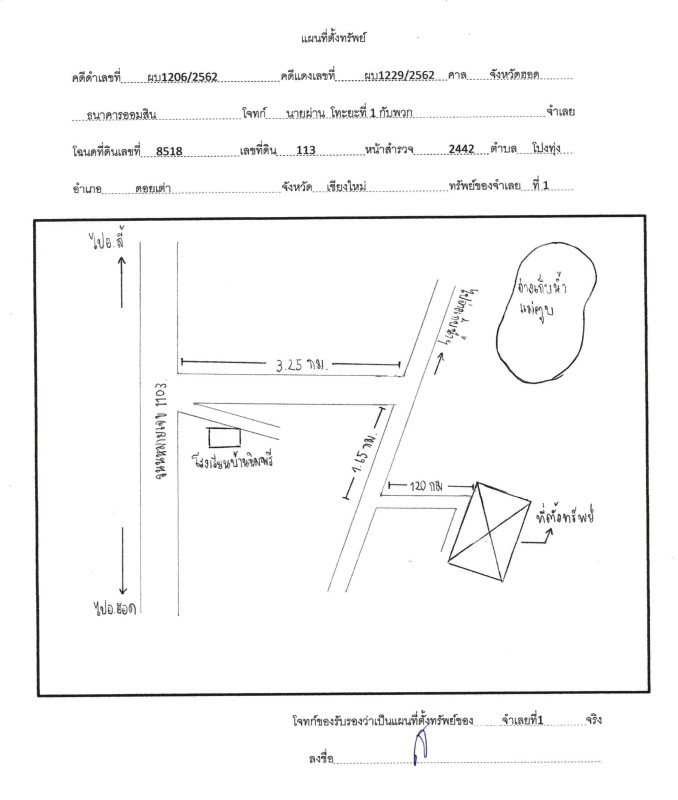 แผนที่ตั้งทรัพย์
คดีดำเลขที่ ผบ1206/2562 คดีแดงเลขที่ ผบ1229/2562 ศาล จังหวัดฮอด
ธนาคารออมสิน โจทก์ นายผ่าน โทะยะที่ 1 กับพวก จำเลย
โฉนดที่ดินเลขที่ 8518 เลขที่ดิน 113 หน้าสำรวจ 2442 ตำบล โปงทุ่ง
อำเภอ ดอยเต่า จังหวัด เชียงใหม่ ทรัพย์ของจำเลย ที่ 1
ไปอ.ลี้
อ่างเก็บน้ำ
แม่ตูบ
3.25 กม.
ถนนหมายเลข 1103.
โรงเรียนบ้าน
1.65 กม.
120 กม
ที่ตั้งทรัพย์
ไปอ.ฮอด
โจทก์ขอรับรองว่าเป็นแผนที่ตั้งทรัพย์ของ จำเลยที่1 จริง
ลงชื่อ